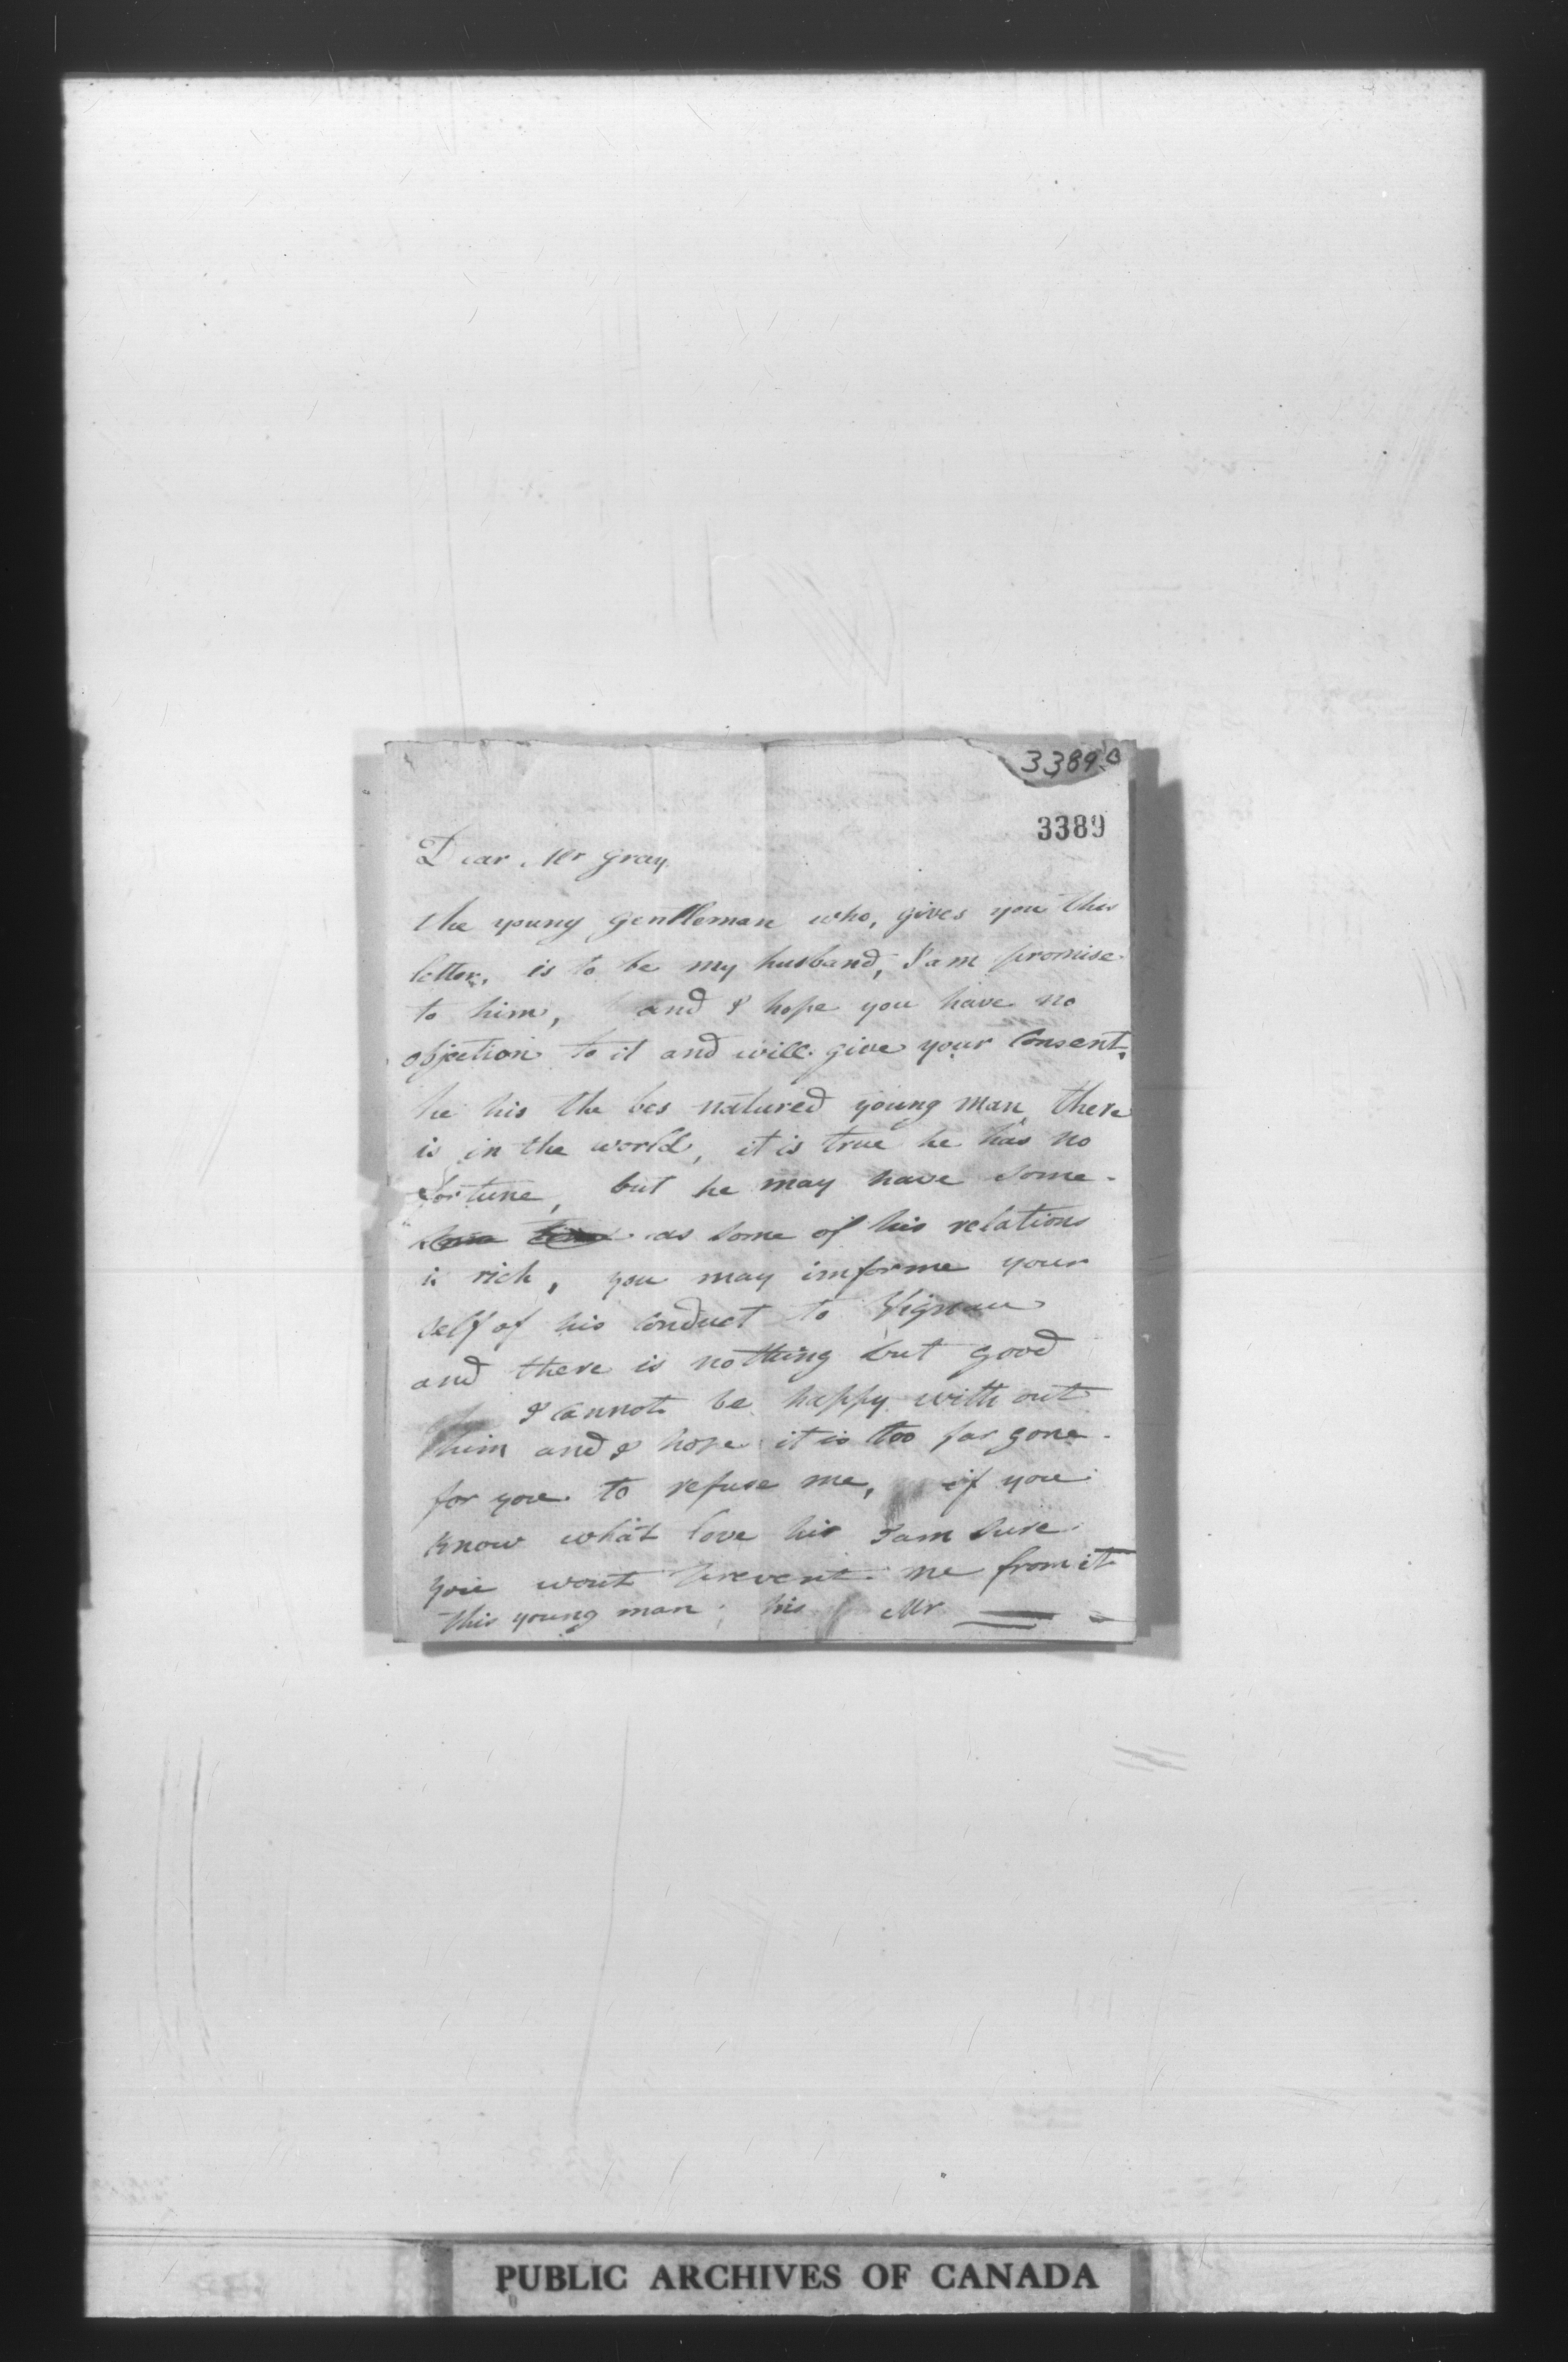 3389
3389
Dear Mr Gray.
the young gentleman who, gives you this
letter. is to be my husband, I am promise
to him, and I hope you have no
objection to it and will give your Consent.
he his the bes natured young man, there
is in the world, it is true he has no
fortune, but he may have some.
as some of his relations
is rich, you may imforme your
self of his Conduct to Vignau
and there is nothing but good
I cannot be happy with out
him and I hope it is too far gone.
for you to refuse me, if you
know what love his I am sure
you wont prevent me from it
this young man, his Mr
PUBLIC ARCHIVES OF CANADA